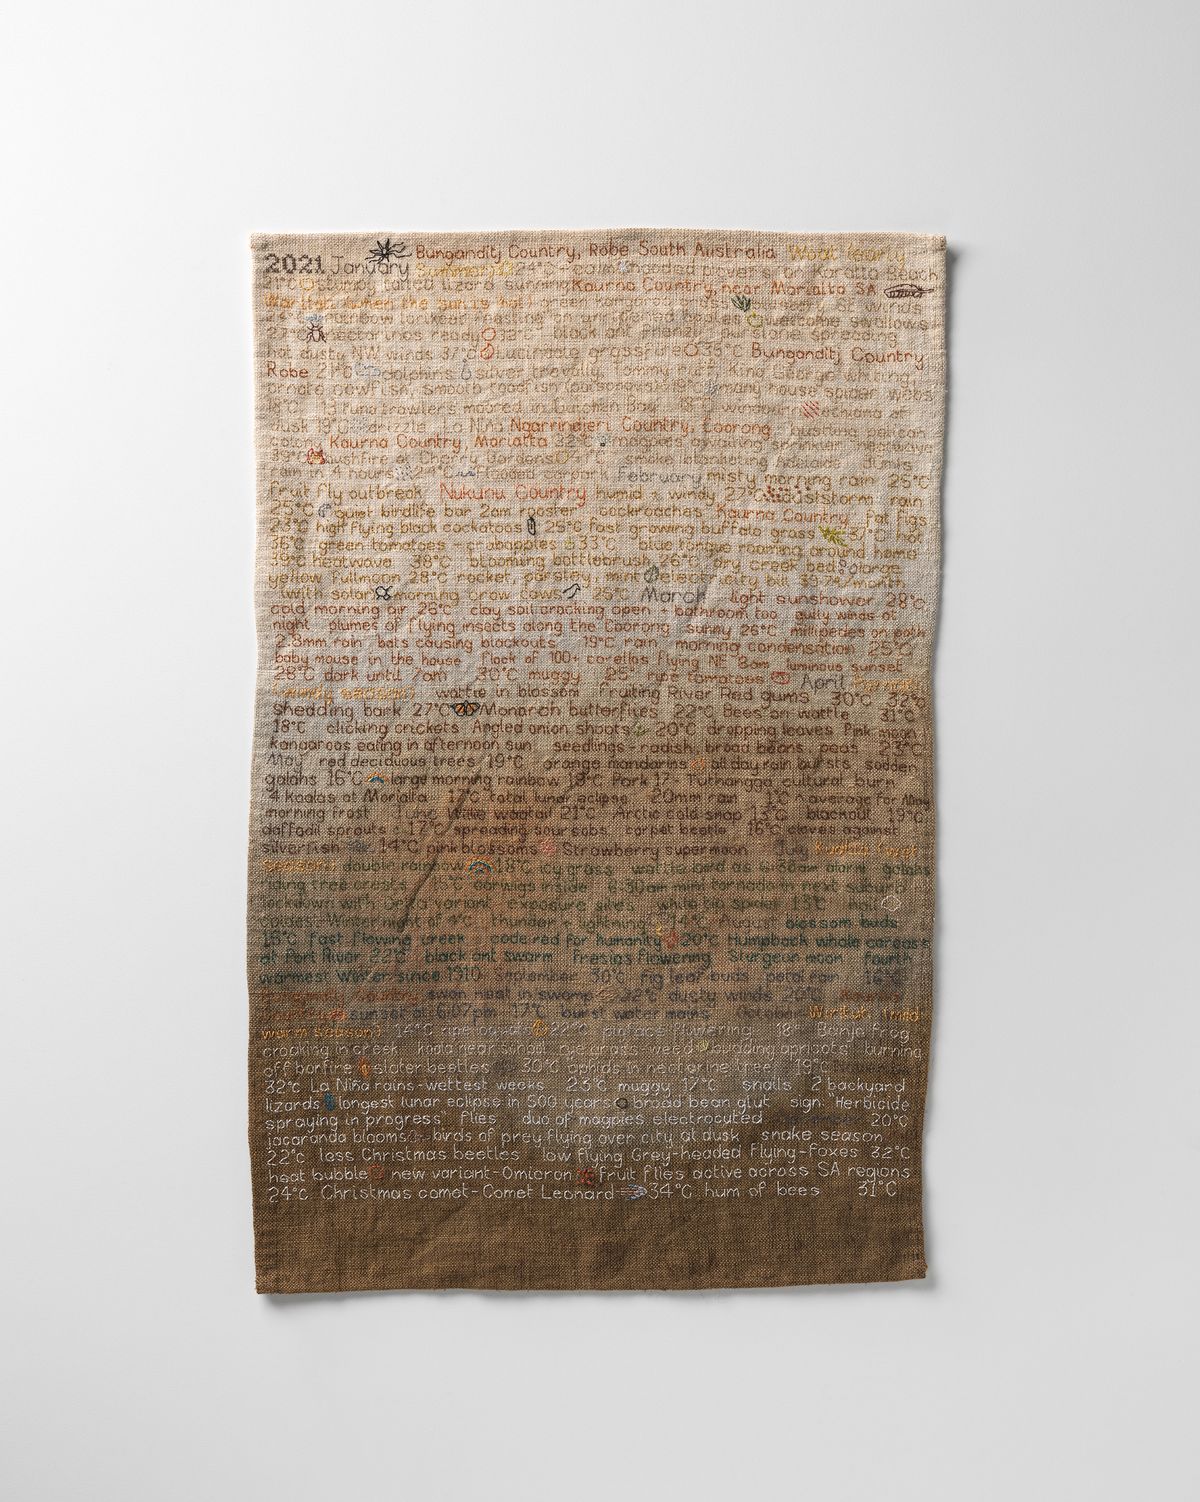 2021 January Bunganditj Country, Robe South Australia Woat (early
Summer) 24°C - calm hooded plovers on Karatta Beach
21°C stumpy tailed lizard sunning Kaurna Country, near Morialta SA
Warltati (when the sun is hot) green kangaroo
rainbow lorikeet feasting on apples welcome swallows
nectarines ready 38°C black ant frenzy storm spreading
hot dusty NW winds 37°C Lucindale grassfire 35°C Bunganditj Country
Robe 21°C dolphins silver trevally Tommy ruff King George whiting
ornate cowfish smooth toadfish many house spider webs
18°C tuna trawlers moored in Butcher Bay 18°C echidna at
dusk 19°C drizzle La Niña Ngarrindjeri Country, Coorong pelican
colony Kaurna Country, Morialta 32°C magpies sprinkler
39°C bushfire at Cherry Gardens smoke blanketing Adelaide
rain in 4 hours 24°C February misty morning rain 25°C
fruit fly outbreak Nukunu Country humid + windy 27°C duststorm rain
25°C quiet birdlife bar 2am rooster cockroaches Kaurna Country, fat figs
23°C high flying black cockatoos 25°C fast growing buffalo grass 37°C hot
36°C green tomatoes crabapples 33°C blue tongue roaming around home
39°C heatwave 38°C blooming bottlebrush 26°C dry creek bed large
yellow fullmoon 28°C rocket, parsley, mint electricity bill
(with solar) morning crow caws 25°C March light sunshower 28°C
cold morning air 26°C clay soil cracking open + bathroom too gully winds at
night plumes of flying insects along the Coorong sunny 26°C millipedes on path
2.8mm rain bats causing blackouts 19°C rain morning condensation 25°C
baby mouse in the house flock of 100+ corellas flying NE 8am luminous sunset
28°C dark until 7am 30°C muggy 25° ripe tomatoes April
(windy season) wattle in blossom fruiting River Red gums 30°C 32°C
shedding bark 27°C Monarch butterflies 22°C Bees on wattle 31°C
18°C clicking crickets Angled onion shoots 20°C dropping leaves Pink moon
kangaroos eating in afternoon sun seedlings - radish, broad beans, peas 23°C
May red deciduous trees 19°C orange mandarins all day rain bursts sudden
galahs 16°C large morning rainbow 18°C Park 17 - Tuthangga cultural burn
4 koalas at Morialta 17°C total lunar eclipse 20mm rain average for May
morning frost June Willie wagtail 21°C Arctic cold snap 13°C blackout 19°C
daffodil sprouts 17°C spreading soursobs carpet beetle 16°C cloves against
silverfish 14°C pink blossoms Strawberry supermoon July Kudlila (wet
season) double rainbow 18°C icy grass wattle bird as 6:38am alarm galahs
riding tree crests 15°C earwigs inside 6:30am mini tornado in next suburb
lockdown with Delta variant exposure sites white tip spider 13°C hail
coldest Winter night of 4°C thunder + lightning 14°C August blossom buds
15°C fast flowing creek code red for humanity 20°C Humpback whale carcass
at Port River 22°C black ant swarm Fresias flowering Sturgeon moon fourth
warmest Winter since 1910 September 30°C fig leaf buds petal rain 16°C
Country swan nest in swamp 22°C dusty winds 20°C
sunset at 6:07pm 17°C burst water mains October Wirltuti (mild
warm season) 14°C ripe loquats 22°C flowering 18°C Banjo frog
croaking in creek koala near school budding apricots burning
off bonfire slater beetles 30°C aphids in nectarine tree 19°C
32°C La Niña rains - wettest weeks 25°C muggy 17°C snails 2 backyard
lizards longest lunar eclipse in 500 years broad bean glut sign "Herbicide
spraying in progress" flies duo of magpies electrocuted December 20°C
jacaranda blooms birds of prey flying over city at dusk snake season
22°C less Christmas beetles low flying Grey-headed Flying-foxes 32°C
heat bubble new variant - Omicron fruit flies active across SA regions
24°C Christmas comet - Comet Leonard 34°C hum of bees 31°C